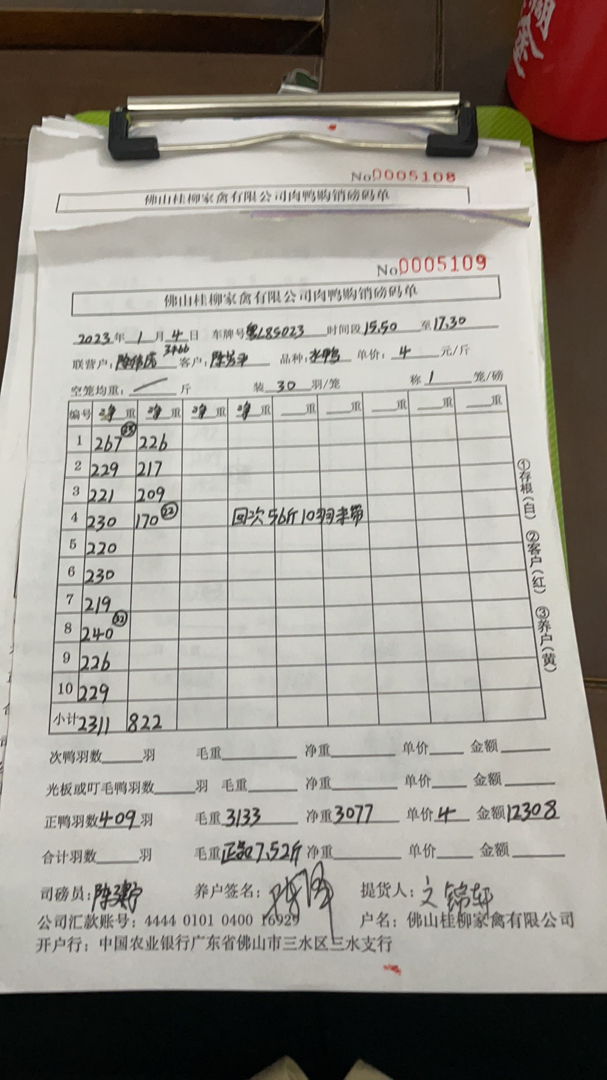 No 0005108
佛山桂柳家禽有限公司肉鸭购销磅码单
No 0005109
佛山桂柳家禽有限公司肉鸭购销磅码单
2023年 1月 4日 车牌号粤L85023 时间段15.50 至17.30
联营户: 客户: 品种: 水鸭 单价: 4 元/斤
空笼均重: 斤 装 30 羽/笼 称 1 笼/磅
编号 净重 净重 净重 净重 重 重 重 重 重
1 267 226
2 229 217
3 221 209
4 230 170 22 回次56斤10羽未带
5 220
6 230
7 219
8 240 32
9 226
10 229
小计 2311 822
①存根(白) ②客户(红) ③养户(黄)
次鸭羽数 羽 毛重 净重 单价 金额
光板或叮毛鸭羽数 羽 毛重 净重 单价 金额
正鸭羽数409羽 毛重3133 净重3077 单价4 金额12308
合计羽数 羽 毛重 7.52斤 净重 单价 金额
司磅员: 养户签名: 提货人: 文锦轩
公司汇款账号: 4444 0101 0400 16929 户名: 佛山桂柳家禽有限公司
开户行: 中国农业银行广东省佛山市三水区三水支行